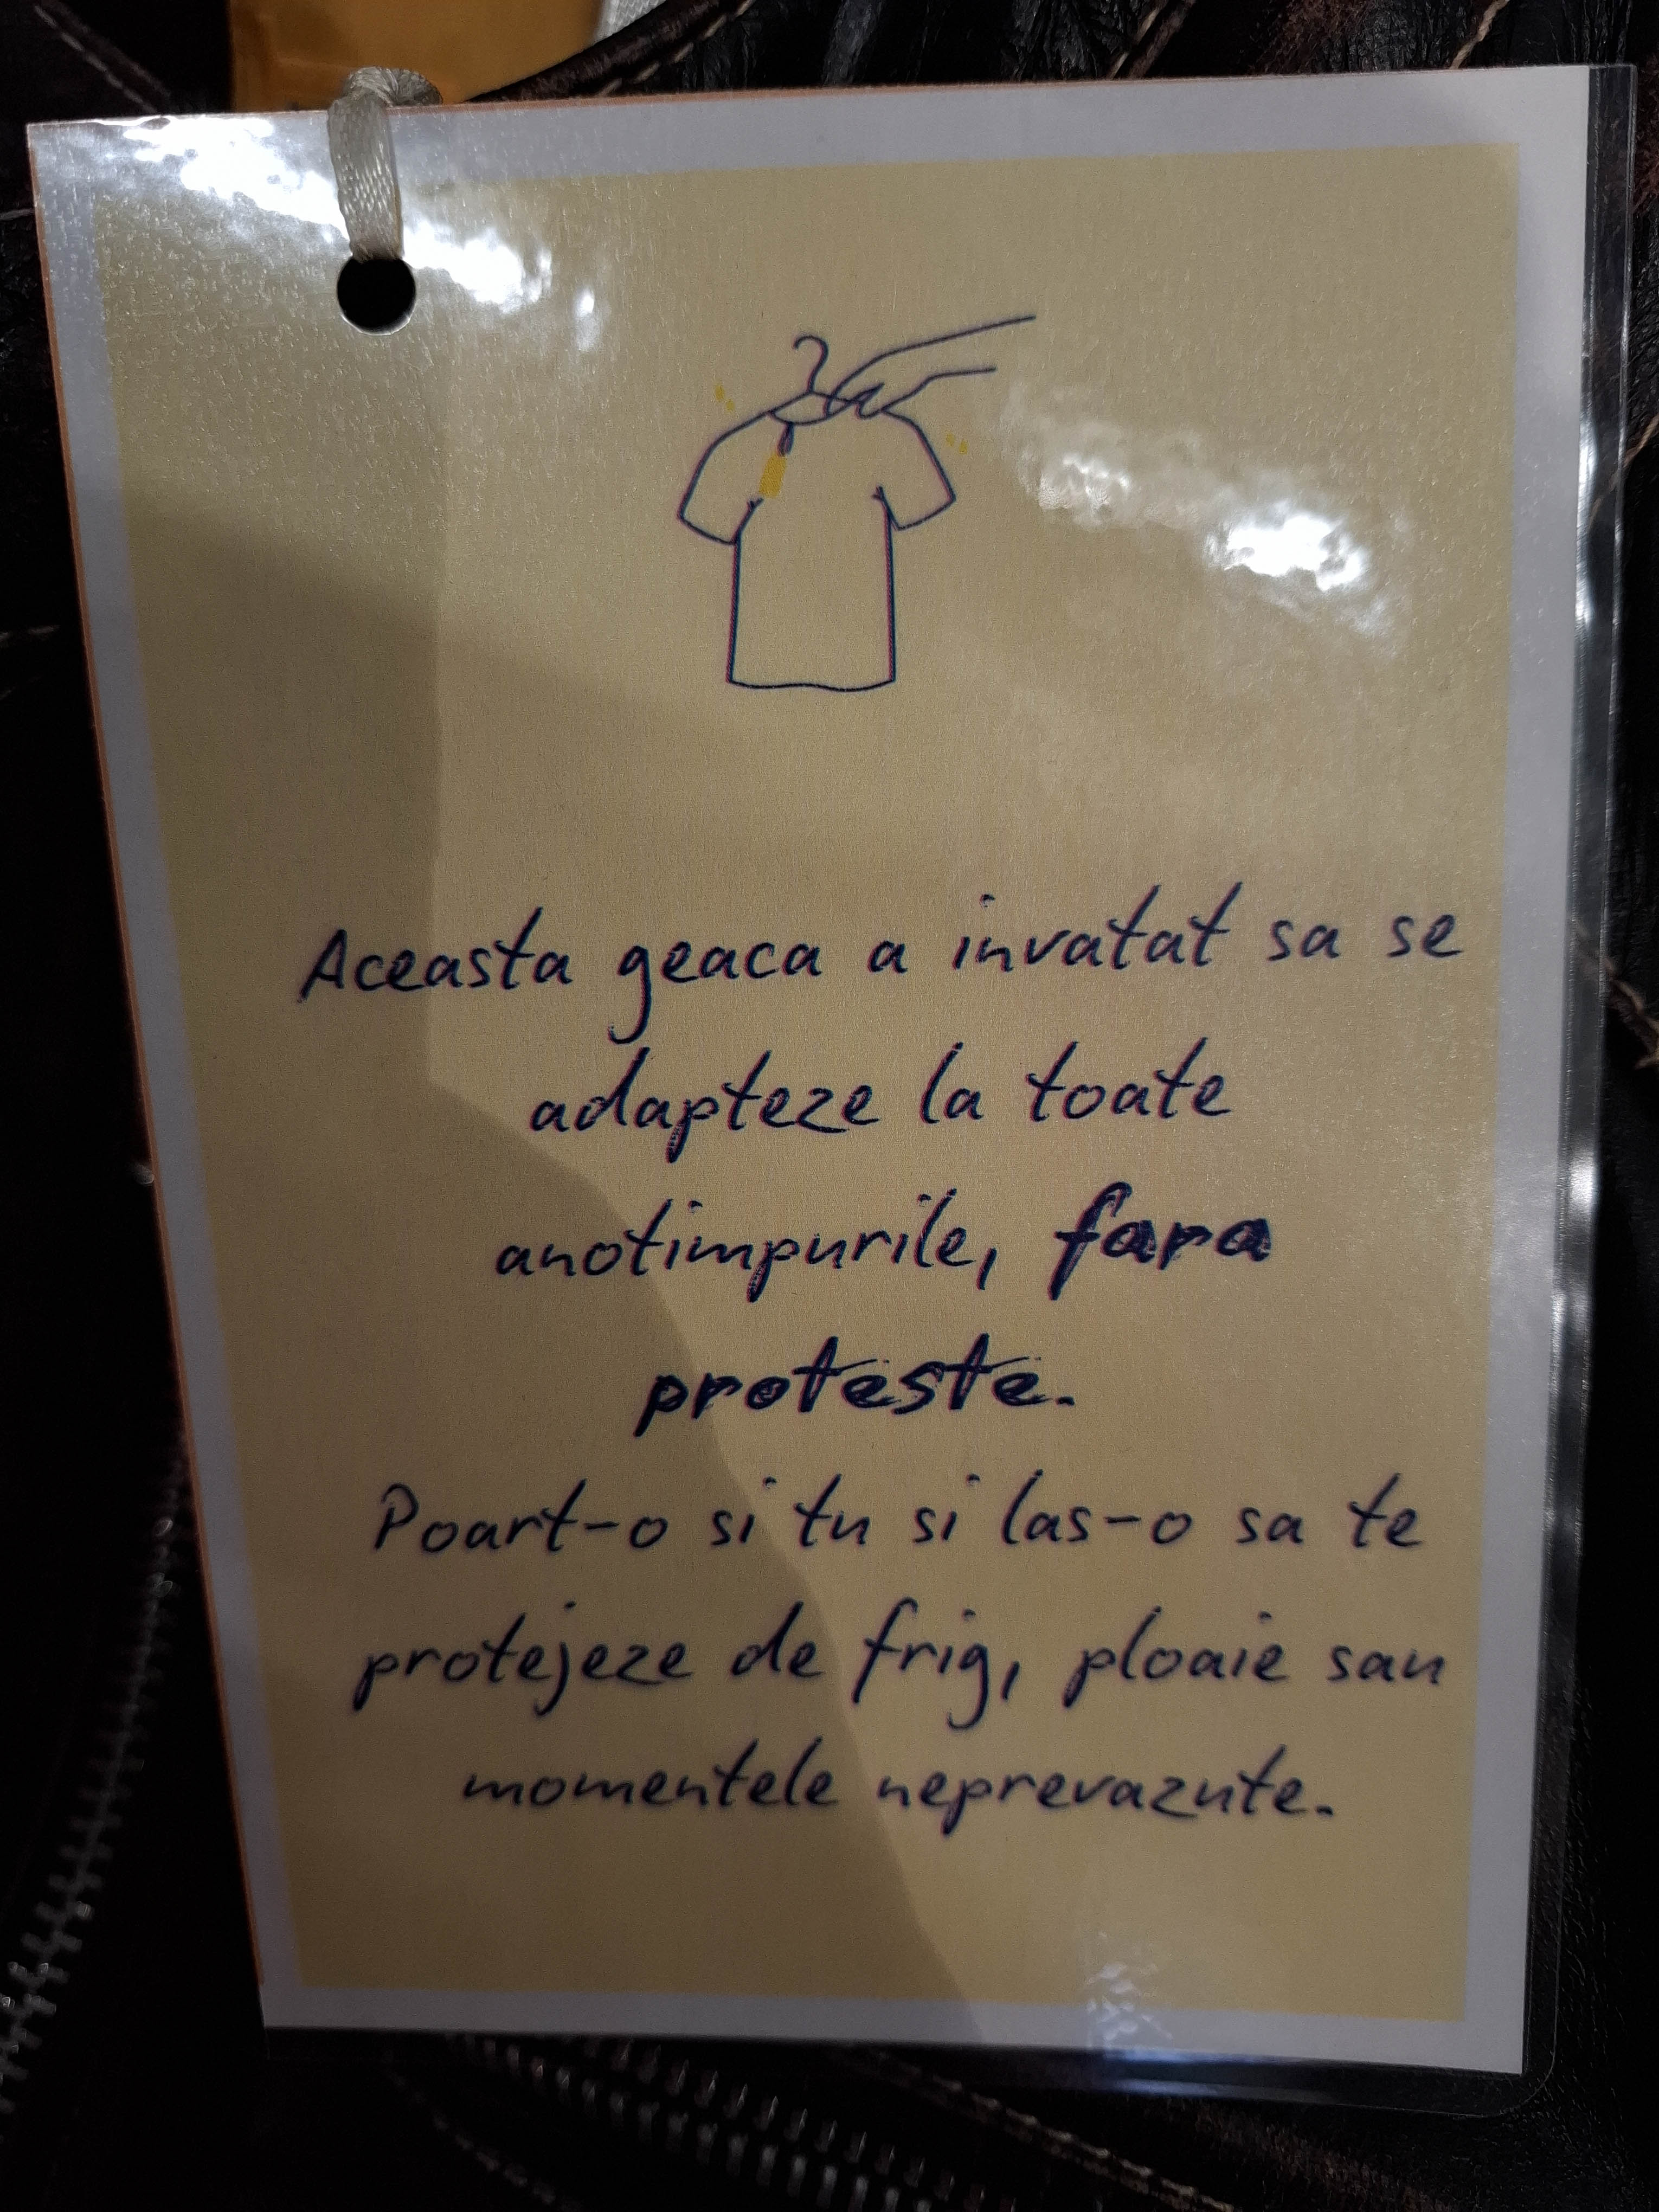 Aceasta geaca a invatat sa se
adapteze la toate
anotimpurile, fara
proteste.
Poart-o si tu si las-o sa te
protejeze de frig, ploaie sau
momentele neprevazute.